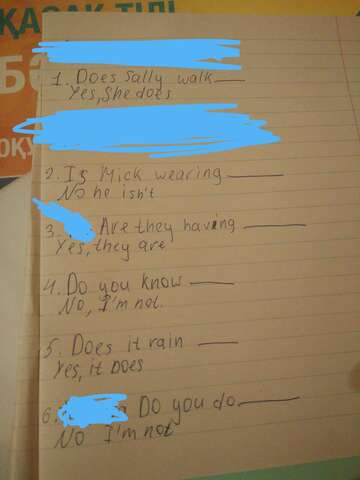 ҚАЗАҚ ТІЛІ
1. Does Sally walk
Yes, She does
2. Is Mick wearing
No he isn't
3. Are they having
Yes, they are
4. Do you know
No, I'm not.
5. Does it rain
Yes, it Does
6. DO you do
No I'm not